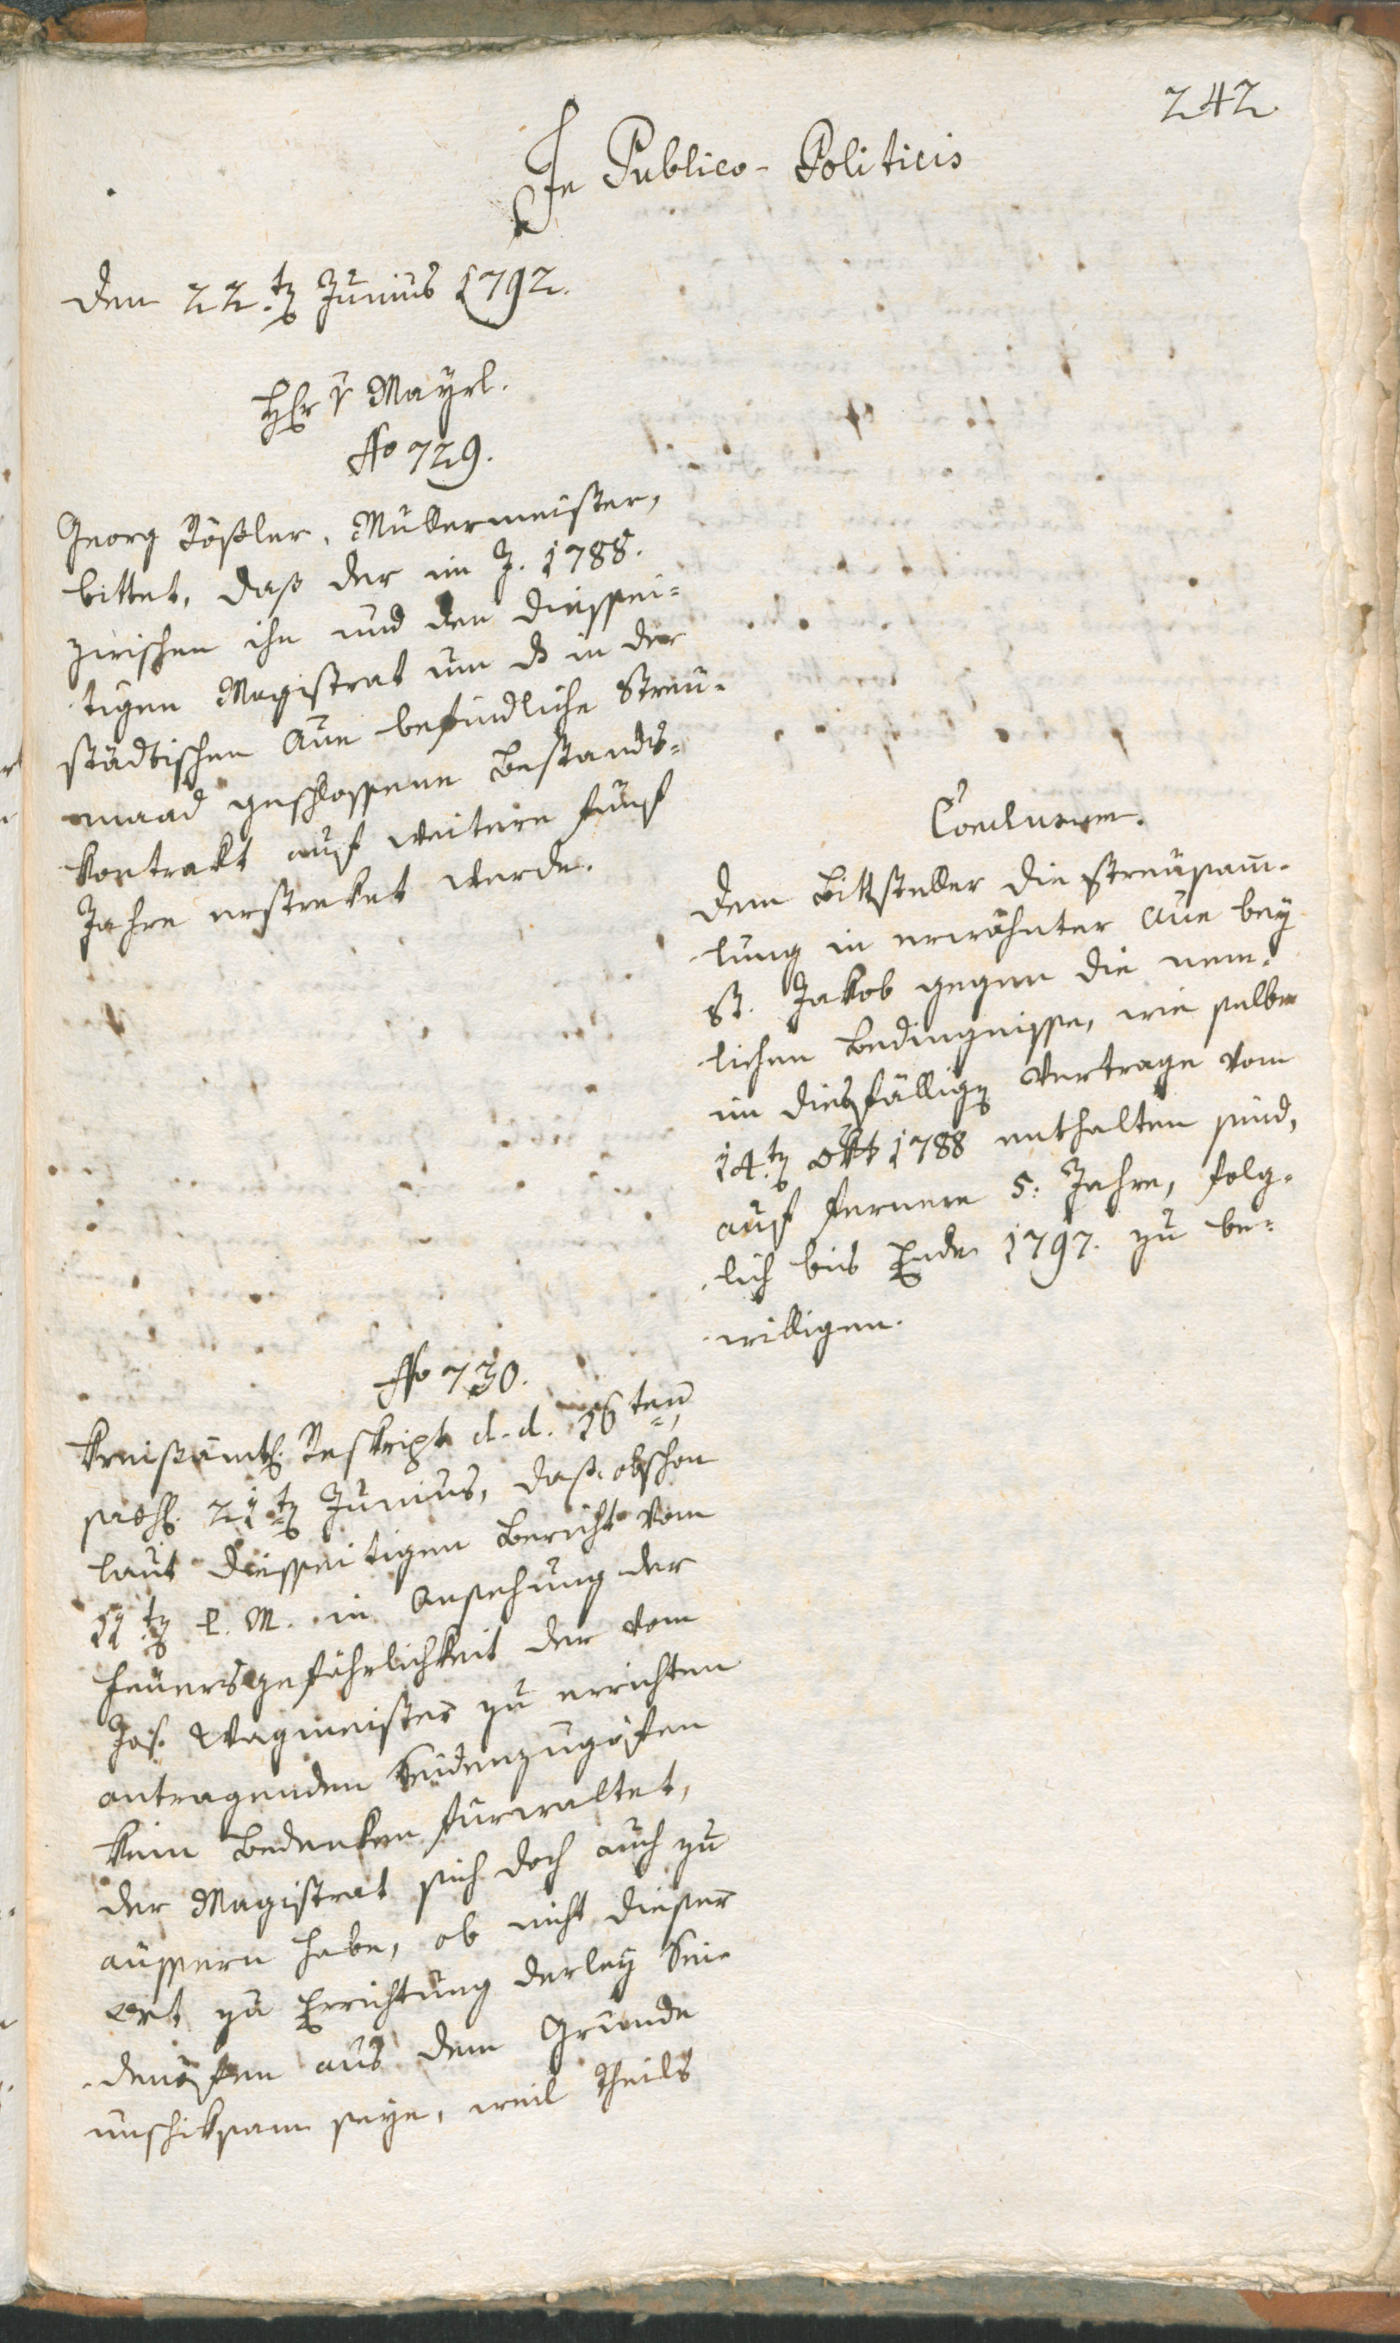 242.
In Publico-Politicis
den 22.t Junius 1792.
H Er v Mayrl.
No 729.
Georg Rößler, Müllermeister,
bittet, daß der im J. 1788.
zwischen ihn und den diessei-
tigen Magistrat um ds in der
städtischen Aue befindliche Streu-
maad geschlossene Bestands-
kontrakt auf weitere fünf
Jahre erstreket werde.
Conclusum.
dem Bittsteller die Streusam̄-
lung in erwähnter Aue bey
St. Jakob gegen die nem-
lichen Bedingnisse, wie selbe
im diesfälligen Vertrage vom
14.t Okt 1788 enthalten sind,
auf fernere 5. Jahre, folg-
lich bis Ende 1797. zu be-
willigen.
No 730.
Kreisämtl. Reskript d. d. 16ten,
21t Junius, daß obschon
laut diesseitigen Bericht vom
11.t l. M. in Ansehung der
Feuersgefährlichkeit der vom
Jos. Wagmeister zu errichten
antragenden Seidenzugöfen
kein Bedenken fürwaltet,
der Magistrat sich doch auch zu
äussern habe, ob nicht dieser
Ort zu Errichtung derley Sei-
denöfen aus dem Grunde
unschiksam seye, weil theils